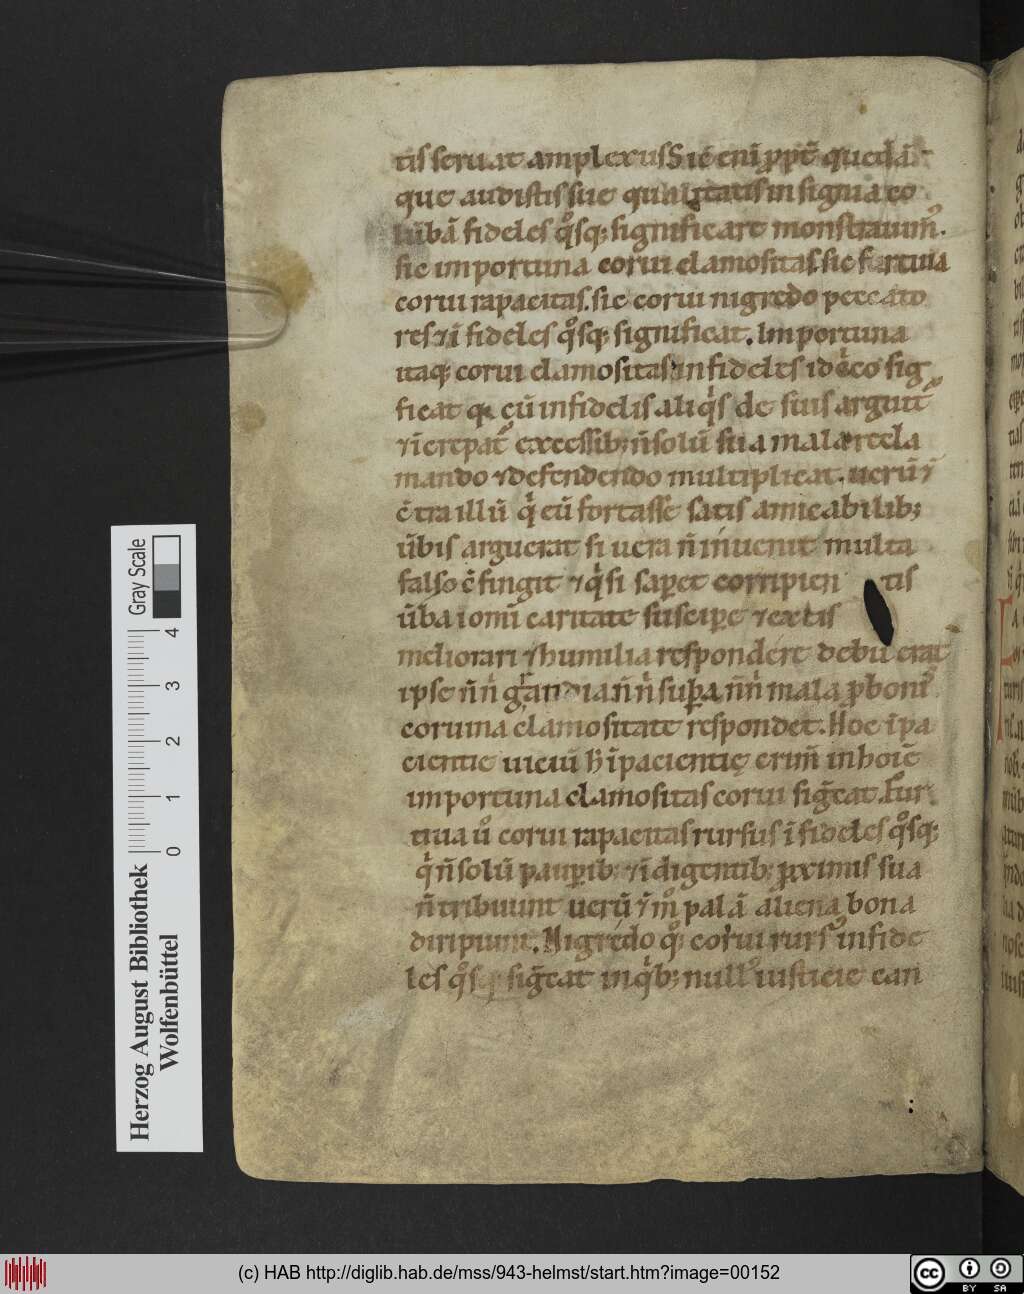 tis seruat amplexus Sic eni ̄ ꝓpt ̄ quedā
que audistis sue qualitatis insignia co
lūbā fideles qͦsq; significare monstrauim᷒.
sic importuna corui clamositas. sic furtiua
corui rapacitas. sic corui nigredo peccato
res ⁊ ī fideles qͦsq; significat. Importuna
itaq; corui clamositas infideles idcͦco sig
ficat q cū infidelis aliqͥs de suis arguit᷒
⁊ ī crepat᷒ excessib; n̄ solū sua mala recla
mando ⁊ defendendo multiplicat. uerū ⁊
c̄tra illū qͥ eū fortasse satis amicabilib;
ūbis arguerat si uera n̄ inuenit multa
falso c̄fingit ⁊ qͥ si saꝑet corripien tis
ūba ī omī caritate susciꝑe ⁊ ex tis
meliorari ⁊ humilia respondere debuerat
ipse n̄ n̄ grandia n̄ n̄ suꝑba n̄ n̄ mala ꝓ boni
coruina clamositate respondet. Hoc īpa
cientie uiciū hͥ īpacientię crim̄ in hoīe
importuna clamositas corui siḡcat. Fur
tiua uͦ corui rapacitas rursus ī fideles qͦsq;
qͥ n̄ solū pauꝑib; ⁊ ī digentib; ꝓximis sua
n̄ tribuunt uerū ⁊ īmͦ palā aliena bona
diripiunt. Nigredo qͦ; corui rurs᷒ infide
les qͦsq siḡcat in qͥb; null᷒ iusticie can
Herzog August Bibliothek
Wolfenbüttel
Gray Scale
0 1 2 3 4
(c) HAB http://diglib.hab.de/mss/943-helmst/start.htm?image=00152
cc BY SA